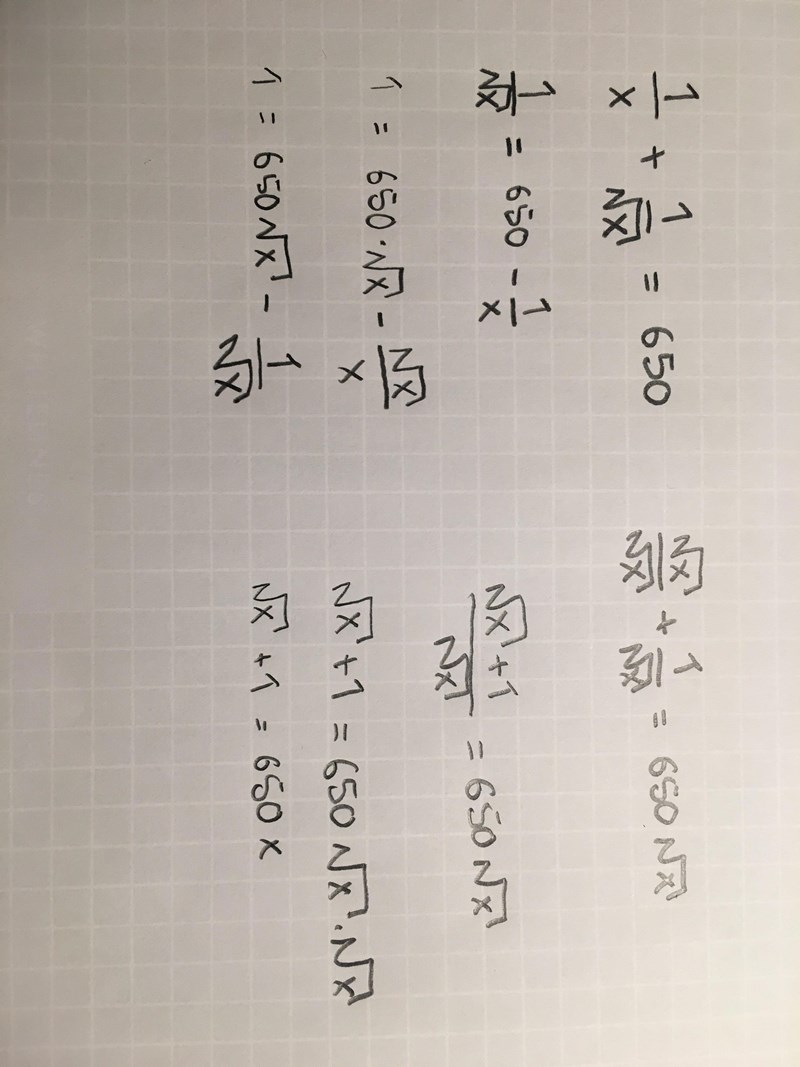 1/x + 1/√x = 650
1/√x = 650 - 1/x
1 = 650·√x - √x/x
1 = 650√x - 1/√x
√x/√x + 1/√x = 650√x
(√x + 1)/√x = 650√x
√x + 1 = 650√x·√x
√x + 1 = 650x